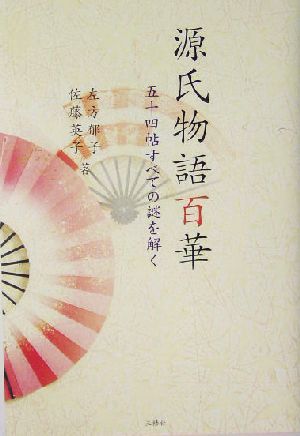 源氏物語百華
五十四帖すべての謎を解く
左方郁子
佐藤英子
著